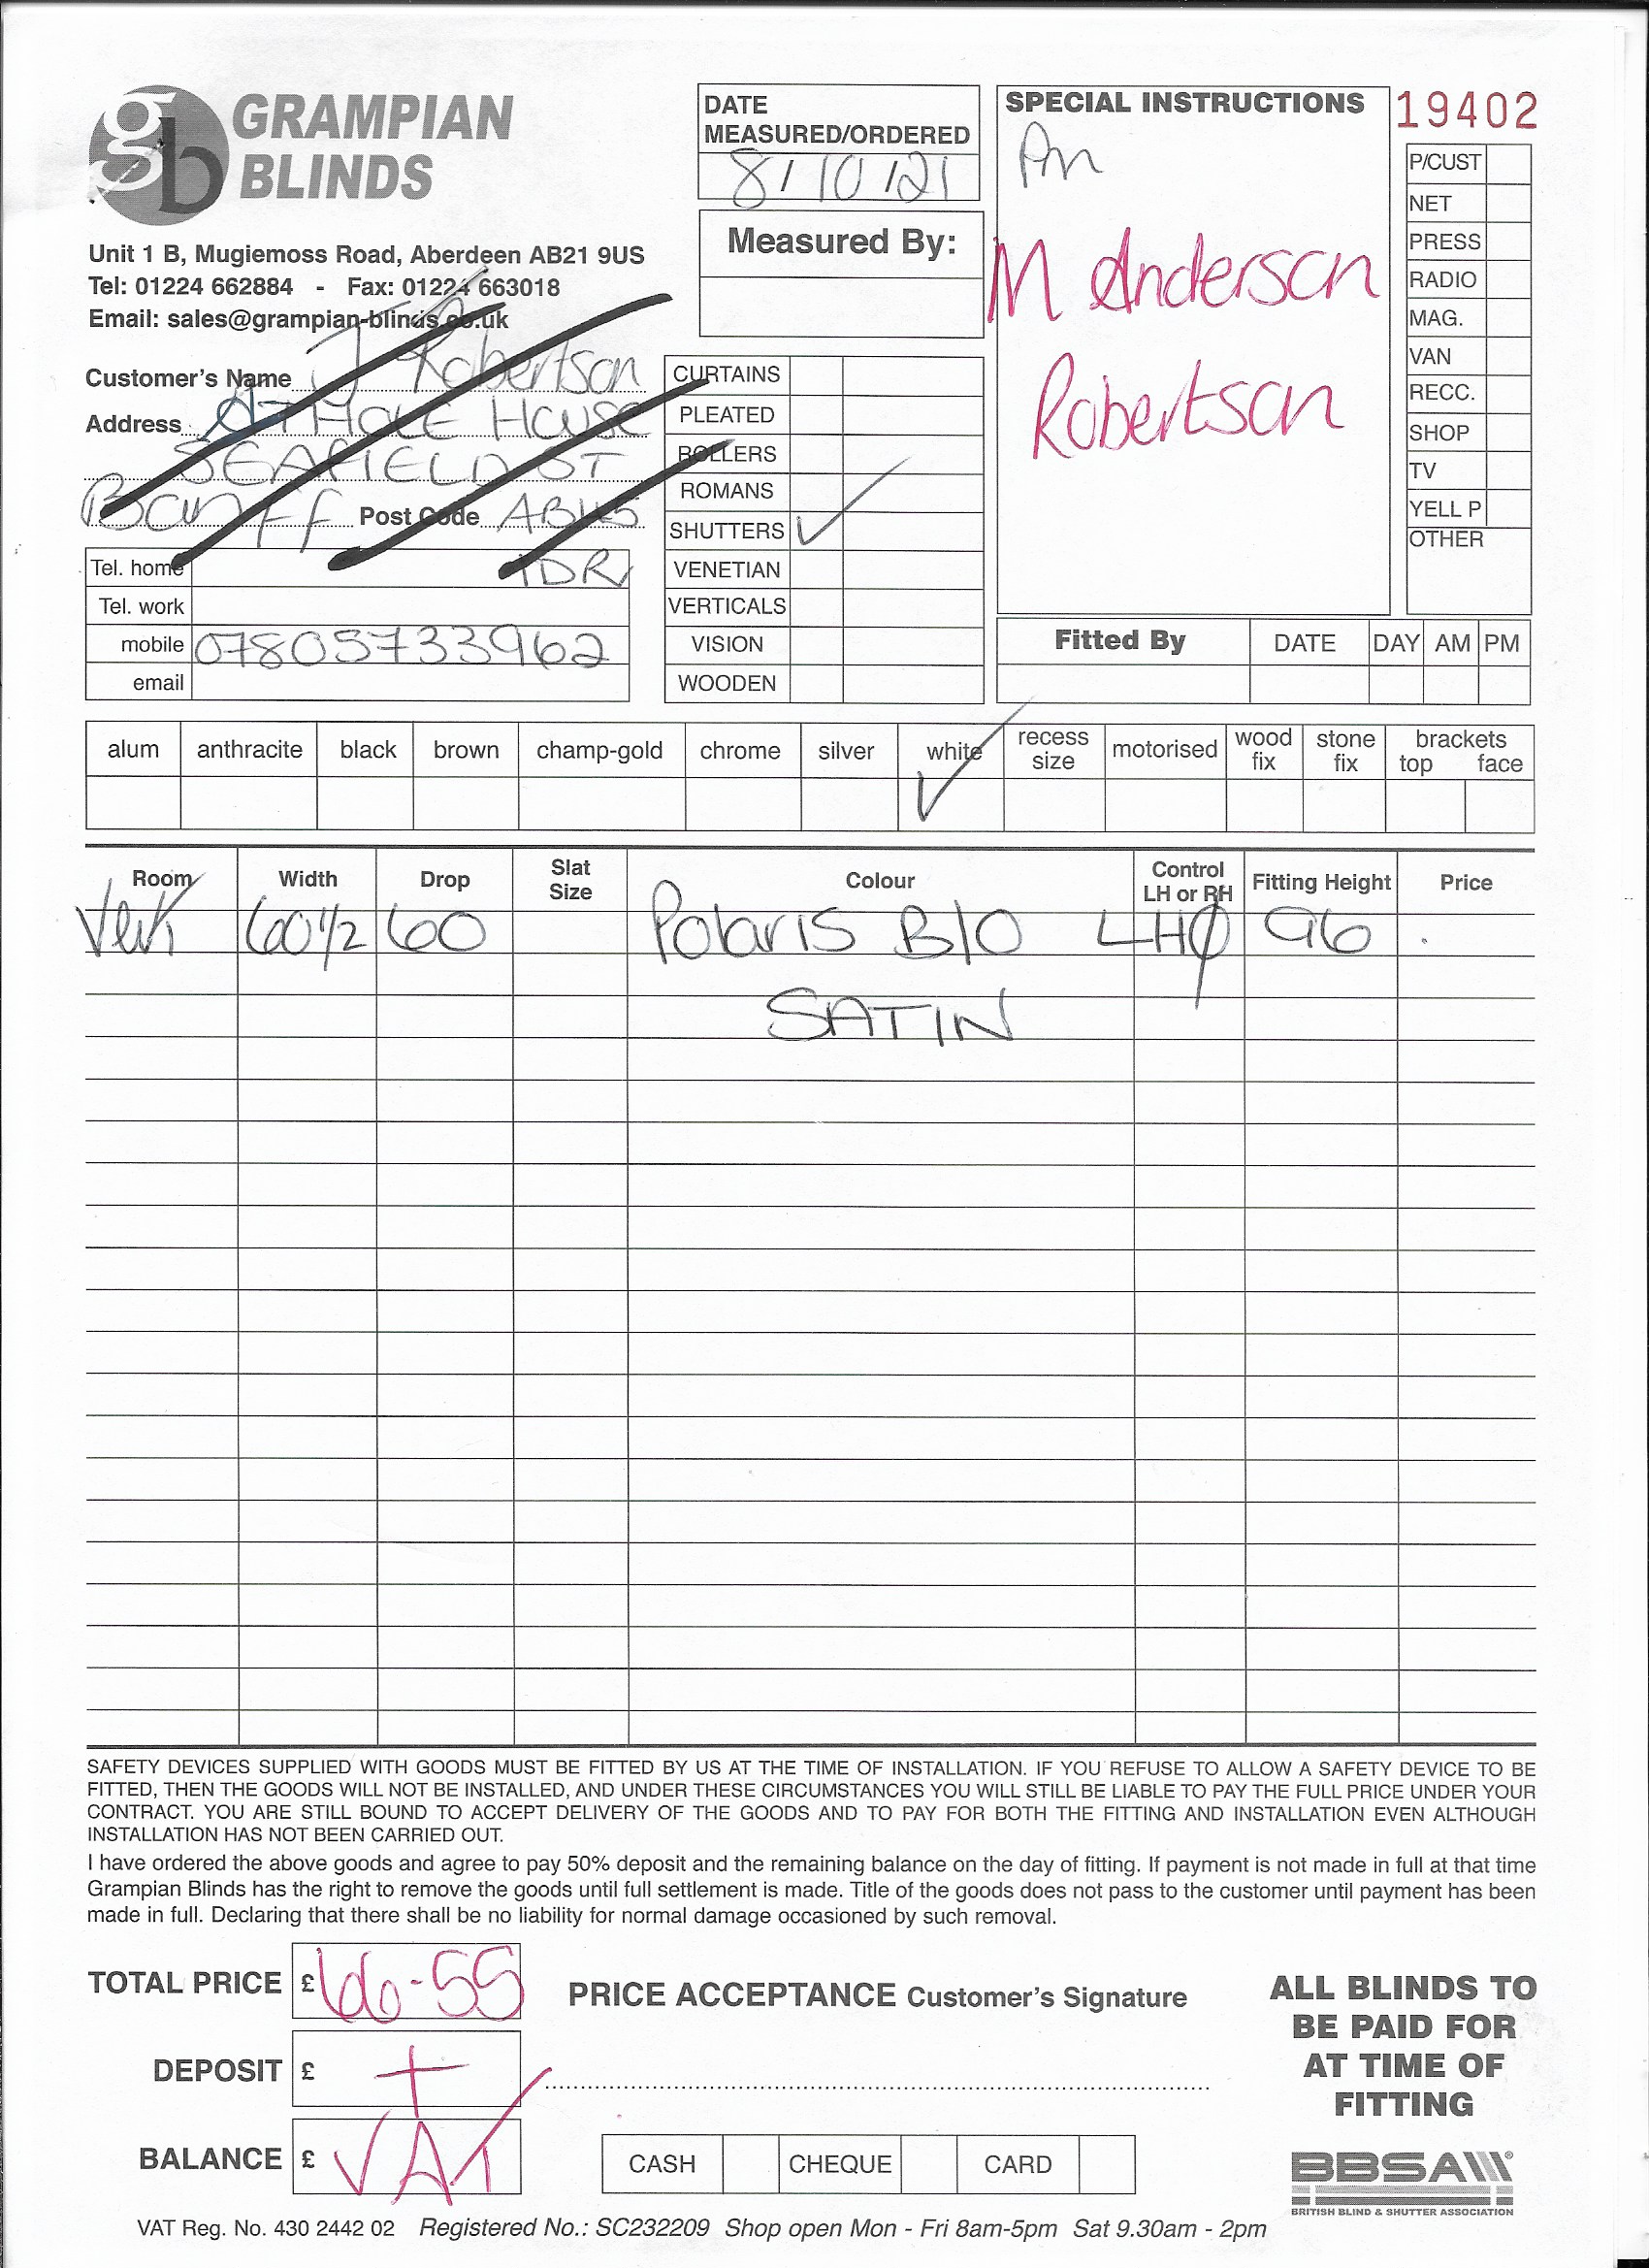 GRAMPIAN
BLINDS
Unit 1 B, Mugiemoss Road, Aberdeen AB21 9US
Tel: 01224 662884 - Fax: 01224 663018
Email: sales@grampian-blinds.co.uk
Customer's Name J Robertson
Address ATHOLE HOUSE
SEAFIELD ST
Banff Post Code AB45
Tel. home 1DR
Tel. work
mobile 07805733962
email
DATE
MEASURED/ORDERED
8/10/21
Measured By:
CURTAINS
PLEATED
ROLLERS
ROMANS
SHUTTERS ✓
VENETIAN
VERTICALS
VISION
WOODEN
SPECIAL INSTRUCTIONS
M Anderson
Robertson
19402
P/CUST
NET
PRESS
RADIO
MAG.
VAN
RECC.
SHOP
TV
YELL P
OTHER
Fitted By DATE DAY AM PM
alum anthracite black brown champ-gold chrome silver white recess size motorised wood fix stone fix brackets top face
✓
Room Width Drop Slat Size Colour Control LH or RH Fitting Height Price
Vert 60 1/2 60 Polaris B/O LH 96
SATIN
SAFETY DEVICES SUPPLIED WITH GOODS MUST BE FITTED BY US AT THE TIME OF INSTALLATION. IF YOU REFUSE TO ALLOW A SAFETY DEVICE TO BE
FITTED, THEN THE GOODS WILL NOT BE INSTALLED, AND UNDER THESE CIRCUMSTANCES YOU WILL STILL BE LIABLE TO PAY THE FULL PRICE UNDER YOUR
CONTRACT. YOU ARE STILL BOUND TO ACCEPT DELIVERY OF THE GOODS AND TO PAY FOR BOTH THE FITTING AND INSTALLATION EVEN ALTHOUGH
INSTALLATION HAS NOT BEEN CARRIED OUT.
I have ordered the above goods and agree to pay 50% deposit and the remaining balance on the day of fitting. If payment is not made in full at that time
Grampian Blinds has the right to remove the goods until full settlement is made. Title of the goods does not pass to the customer until payment has been
made in full. Declaring that there shall be no liability for normal damage occasioned by such removal.
TOTAL PRICE £ 66-55
DEPOSIT £ +
BALANCE £ VAT
PRICE ACCEPTANCE Customer's Signature
CASH CHEQUE CARD
ALL BLINDS TO
BE PAID FOR
AT TIME OF
FITTING
BBSA
BRITISH BLIND & SHUTTER ASSOCIATION
VAT Reg. No. 430 2442 02 Registered No.: SC232209 Shop open Mon - Fri 8am-5pm Sat 9.30am - 2pm